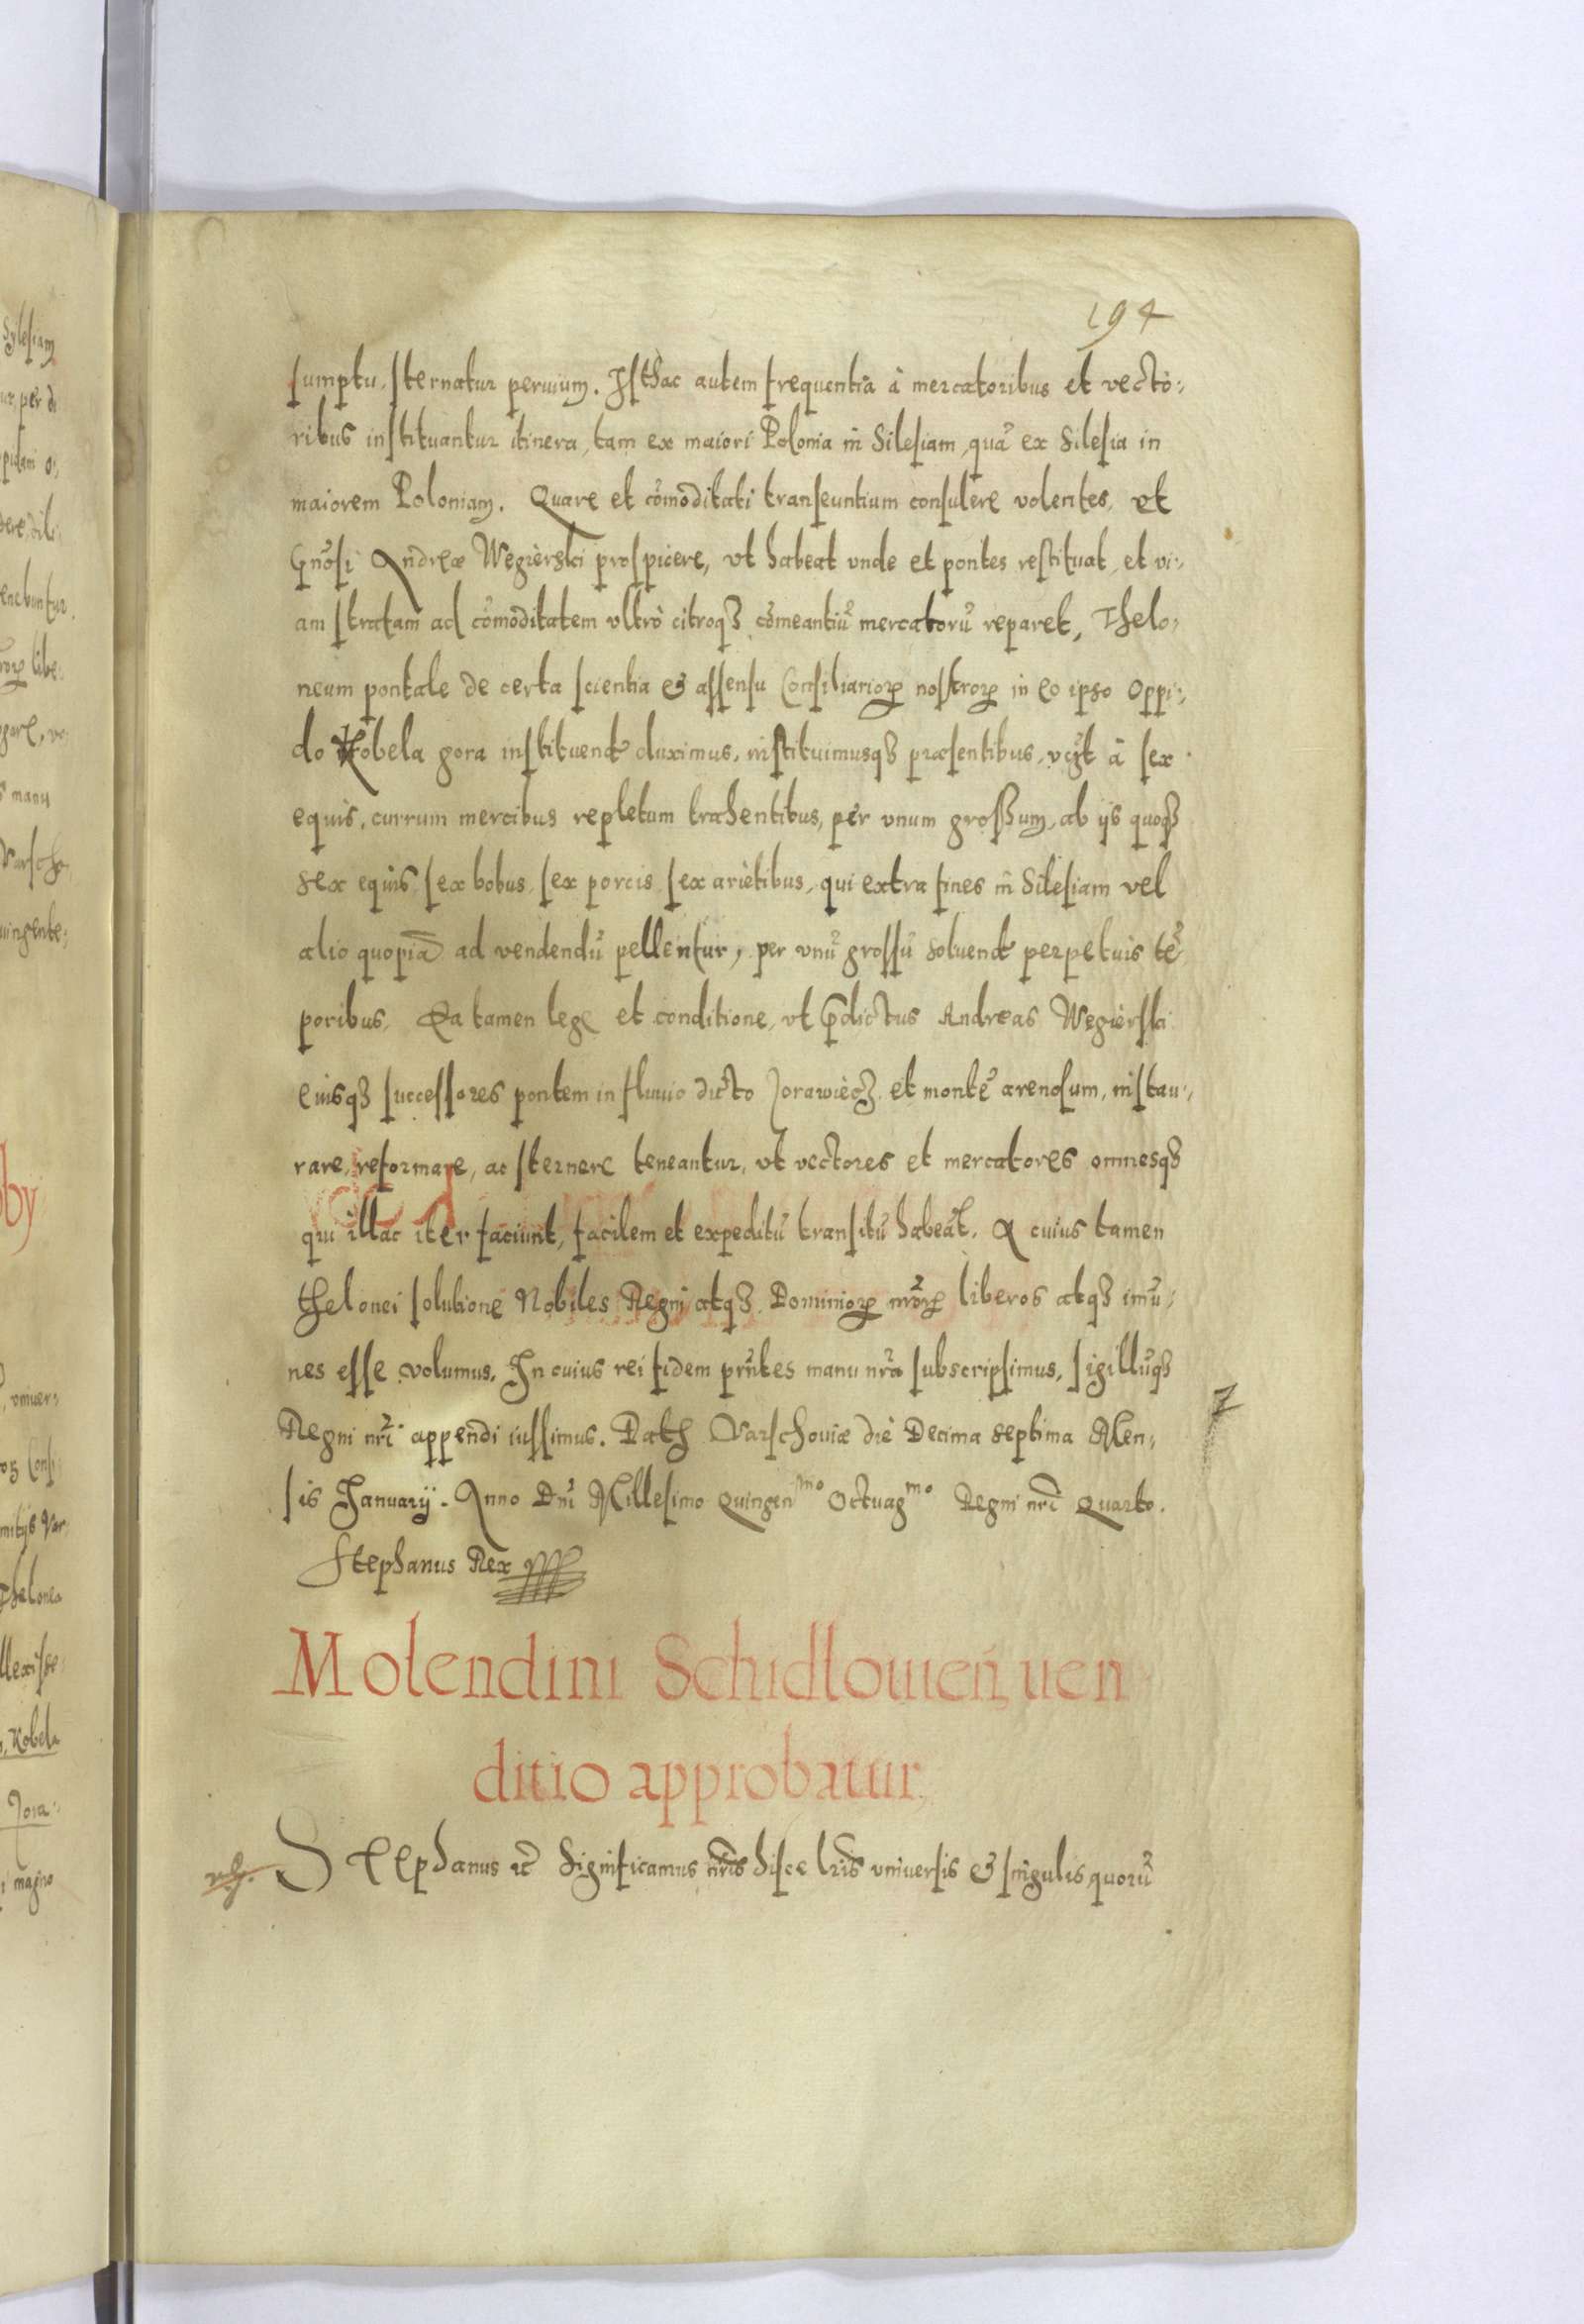 194
sumptu, sternatur pervium. Isthac autem frequentia à mercatoribus et vecto:,
ribus instituantur itinera, tam ex maiori Polonia in Silesiam, quā ex Silesia in
maiorem Poloniam. Quare et cōmoditati transeuntium consulere volentes, et
Gnōsi Andreæ Wegierski prospicere, vt habeat vnde et pontes restituat, et vi:,
am stratam ad cōmoditatem vltro citroq3 cōmeantiū mercatorū reparet, Thelo,
neum pontale de certa scientia & assensu Consiliarioꝝ nostroꝝ in eo ipso oppi:,
do Kobela gora instituend duximus, instituimusq3 præsentibus, vc3t à sex
equis, currum mercibus repletum trahentibus, per vnum großum, ab ijs quoq3
sex equis, sex bobus, sex porcis, sex arietibus, qui extra fines in Silesiam vel
alio quopiā ad vendendū pellentur, per vnū grossū soluend perpetuis tē
poribus. Ea tamen lege et conditione, vt p̄dictus Andreas Wegierski
eiusq3 successores pontem in fluuio dicto Jorawiecz et montē arenosum, instau:,
rare, reformare, ac sternere teneantur, vt vectores et mercatores omnesq3
qui illac iter faciunt, facilem et expeditū transitū habeāt. A cuius tamen
thelonei solutione Nobiles Regni atq3 Dominioꝝ nr̄oꝝ liberos atq3 imū,
nes esse volumus. In cuius rei fidem pr̄ntes manu nr̄a subscripsimus, sigillūq3
Regni nr̄i appendi iussimus. Dath Varschoviæ die Decima septima Men,
sis Januarij. Anno Dnī Millesimo Quingenmo Octuagmo Regni nr̄i Quarto.
Stephanus Rex
Molendini Schidlowien̄ uen
ditio approbatur
Stephanus ꝛc̄ Significamus nr̄is hisce lr̄is vniversis & singulis, quorū